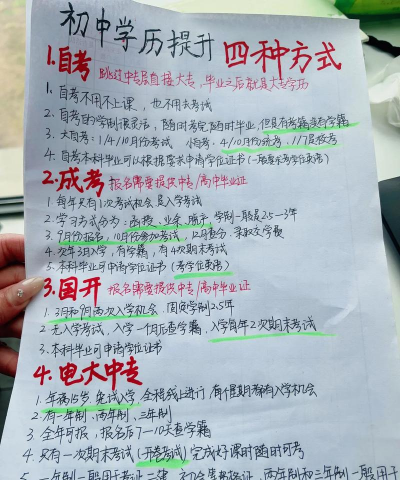 初中学历提升 四种方式
1.自考 跳过中专层直接大专,毕业之后就是大专学历
1. 自考不用上课,也不用去考试
2. 自考的学制很灵活,随时考完随时毕业,但具有考籍没有学籍
3. 大自考:1/4/10月份考试 小自考:4/10月份统考,1/7月校考
4. 自考本科毕业可以根据需求申请学位证书
2.成考 报名需要提供中专/高中毕业证
1. 每年只有1次考试机会是入学考试
2. 学习方式分为:函授、业余、脱产 学制一般是2.5-3年
3. 9月份报名,10月份参加考试,12月查分、录取交学费
4. 次年3月入学,有学籍,有4次期末考试
5. 本科毕业可申请学位证书(考学位英语)
3.国开 报名需要提供中专/高中毕业证
1. 3月和9月两次入学机会.固定学制2.5年
2. 无入学考试,入学一个月后查学籍,入学每年2次期末考试
3. 本科毕业可申请学位证书
4.电大中专
1. 年满15岁 免试入学,全程线上进行,有
2. 有一年制、两年制、三年制
3. 全年可报,报名后7-10天查学籍
4. 只有一次期末考试(开卷考试)完成好课时随时可考
5. 一年制一般用于考证二建、